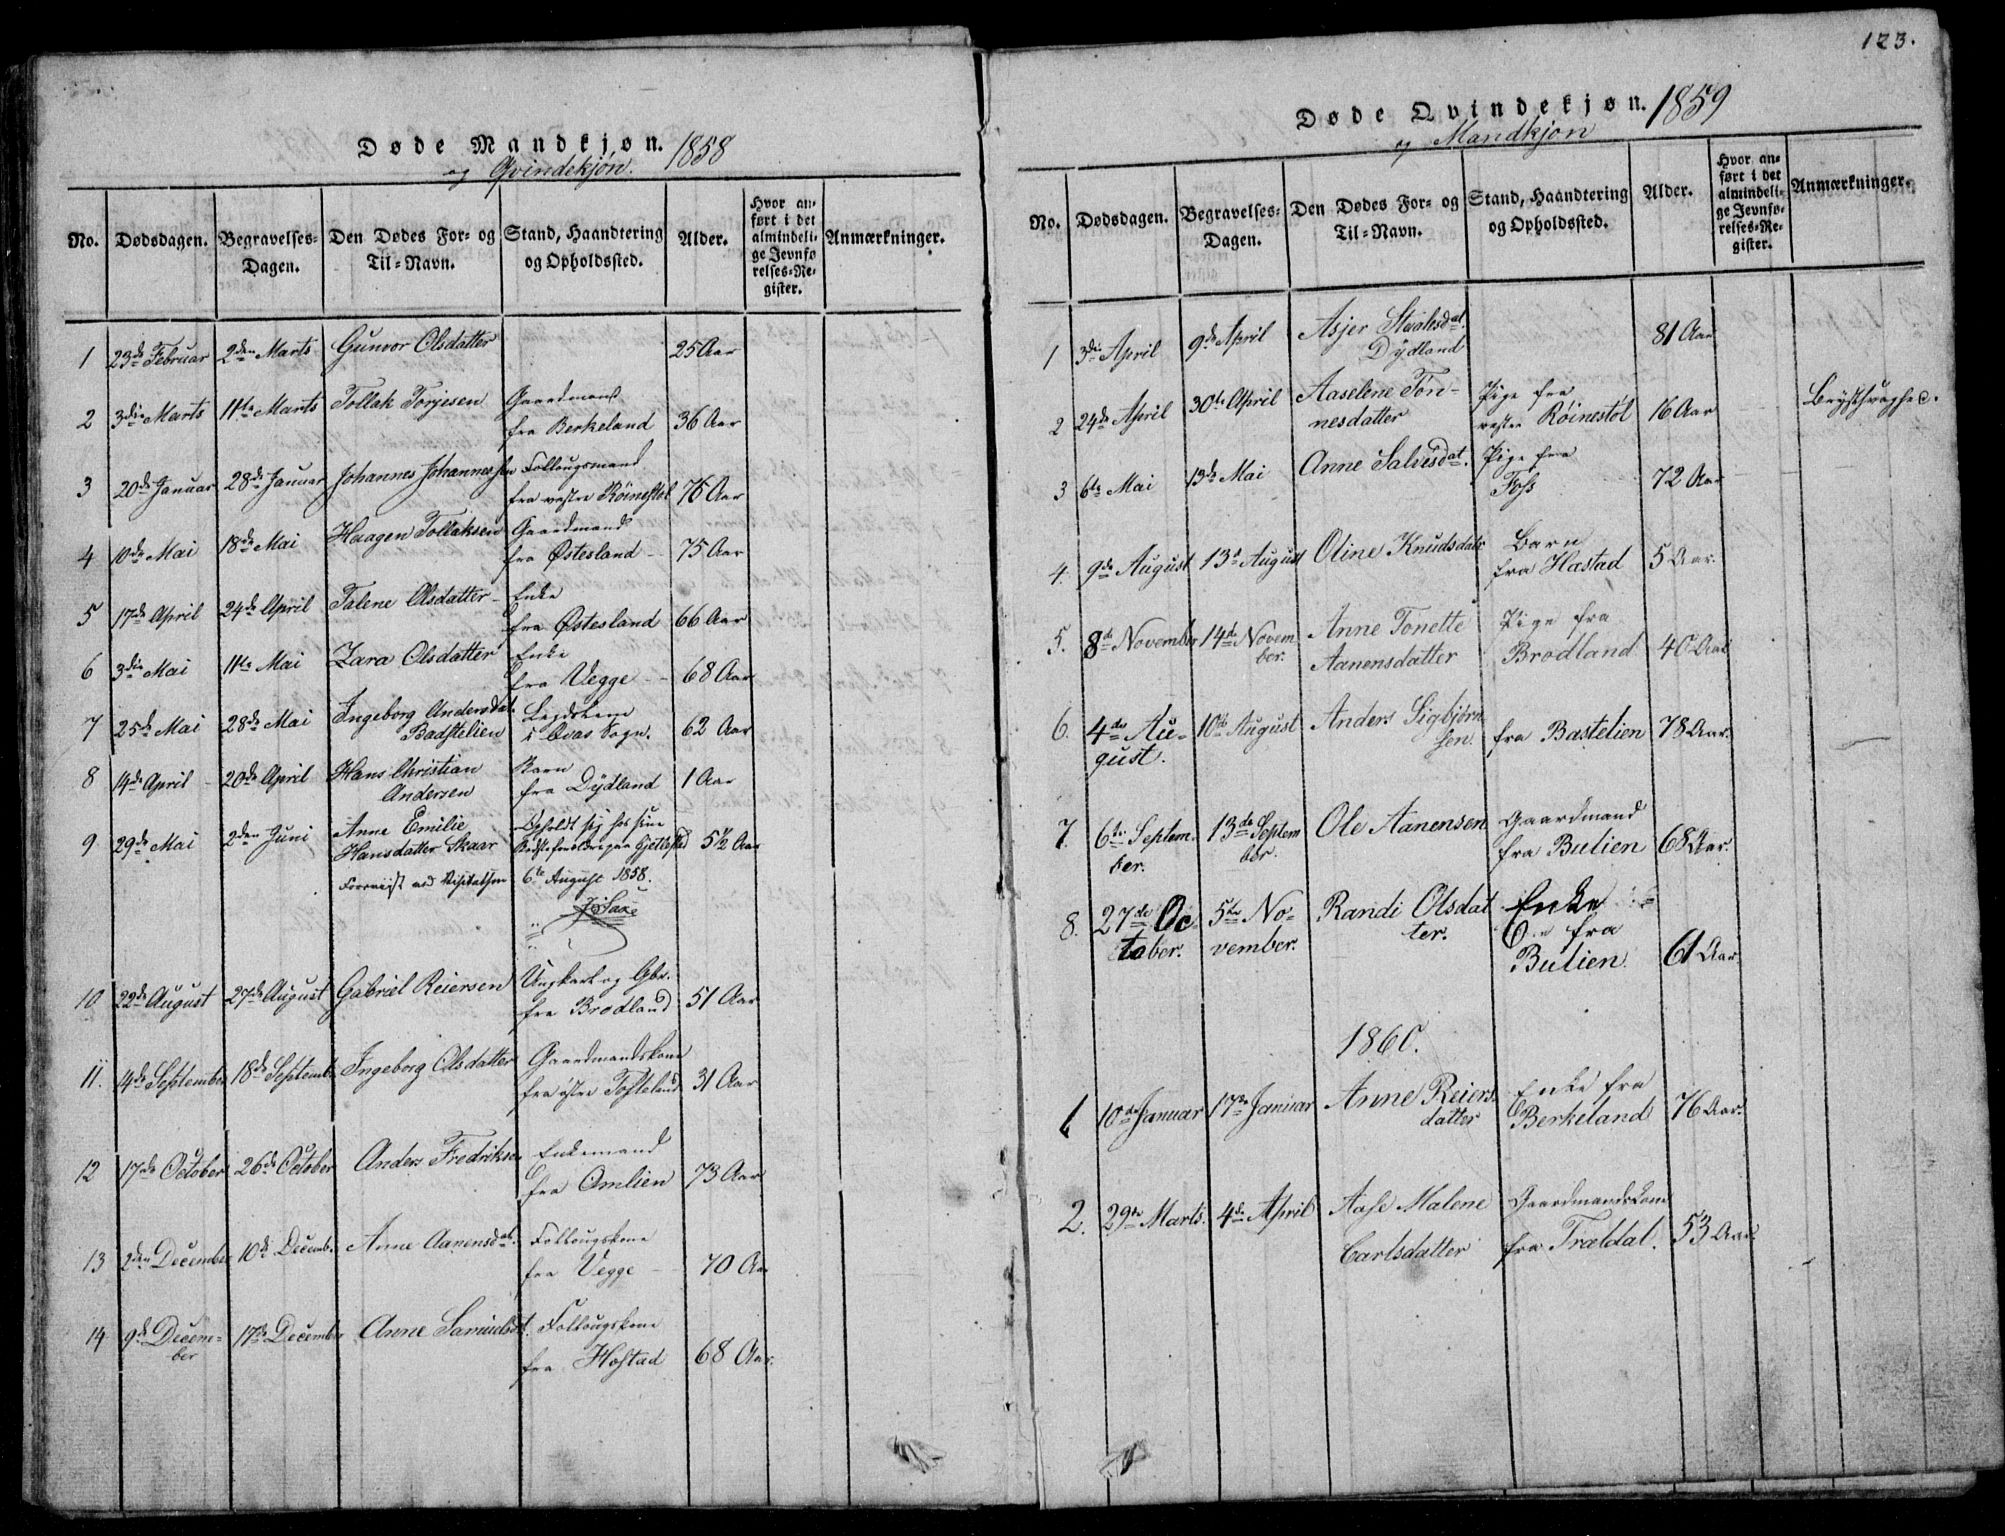 Døde Mandkjøn. 1858
og Qvindekjøn.
No. Dødsdagen. Begravelses-Dagen. Den Dødes For- og Til-Navn. Stand, Haandtering og Opholdssted. Alder. Hvor anført i det almindelige Jevnførelses-Register. Anmærkninger.
1 23de Februar 2den Marts Gunvor Olsdatter 25 Aar
2 3die Marts 11te Marts Tollak Torjesen Gaardmand
fra Berkeland 36 Aar
3 20de Januar 28de Januar Johannes Johannessen Follougsmand
fra vestre Röinestöl 76 Aar
4 10de Mai 18de Mai Haagen Tollaksen Gaardmand
fra Østesland 75 Aar
5 17de April 24de April Talene Olsdatter Enke
fra Østesland 66 Aar
6 3die Mai 11te Mai Zara Olsdatter Enke
fra Vegge 68 Aar
7 25de Mai 28de Mai Ingeborg Andersdat.
Badstelien i Qvas Sogn. 62 Aar
8 14de April 20de April Hans Christian Barn
Andersen fra Dÿdland 1 Aar
9 29de Mai 2den Juni Anne Emilie Opholdt sig hos sine
Hansdatter Skaar 5½ Aar
Foreviist ved Visitatsen 6te August 1858.
10 22de August 27de August Gabriel Reiersen Ungkarl og Gbr.
fra Brodland 51 Aar
11. 14de September 18de Septemb. Ingeborg Olsdatter Gaardmandskone
fra østre 31 Aar
12 17de October 26de October Anders Fredriksen Enkemand
fra Omlien 73 Aar
13 2den December 10de Decemb. Anne Aanensdat. Follougskone
fra Vegge 70 Aar
14 9de December 17de December Anne Samuelsdt. Follougskone
fra Høstad 68 Aar.
123.
Døde Qvindekjøn. 1859
og Mandkjøn
No. Dødsdagen. Begravelses-Dagen. Den Dødes For- og Til-Navn. Stand, Haandtering og Opholdssted. Alder. Hvor anført i det almindelige Jevnførelses-Register. Anmærkninger.
1 3die April 9de April Asjer Staalesdat.
Dÿdland 81 Aar
2 24de April 30te April Aaselene Tönnesdatter Pige fra
vestre Röinestöl 16 Aar
3 6te Mai 13de Mai Anne Salvesdat. Pige fra
Foss 72 Aar
4. 9de August 13de August Oline Knudsdatr Barn
fra Høstad 5 Aar.
5. 8de November 14de November. Anne Tonette Pige fra
Aanensdatter Brodland 40 Aar
6. 4de August. 10de August Anders Sigbjørnsen. fra Bastelien 78 Aar.
7. 6te September. 13de September. Ole Aanensen Gaardmand
fra Bulien 68 Aar.
8. 27de October. 5te November. Randi Olsdatter. Enke
fra
Bulien. 61 Aar.
1860.
1 10de Januar 17de Januar Anne Reiersdatter Enke fra
Berkeland 76 Aar.
2. 29de Marts. 4de April Aase Malene Gaardmandskone
Carlsdatter fra Trældal. 53 Aar